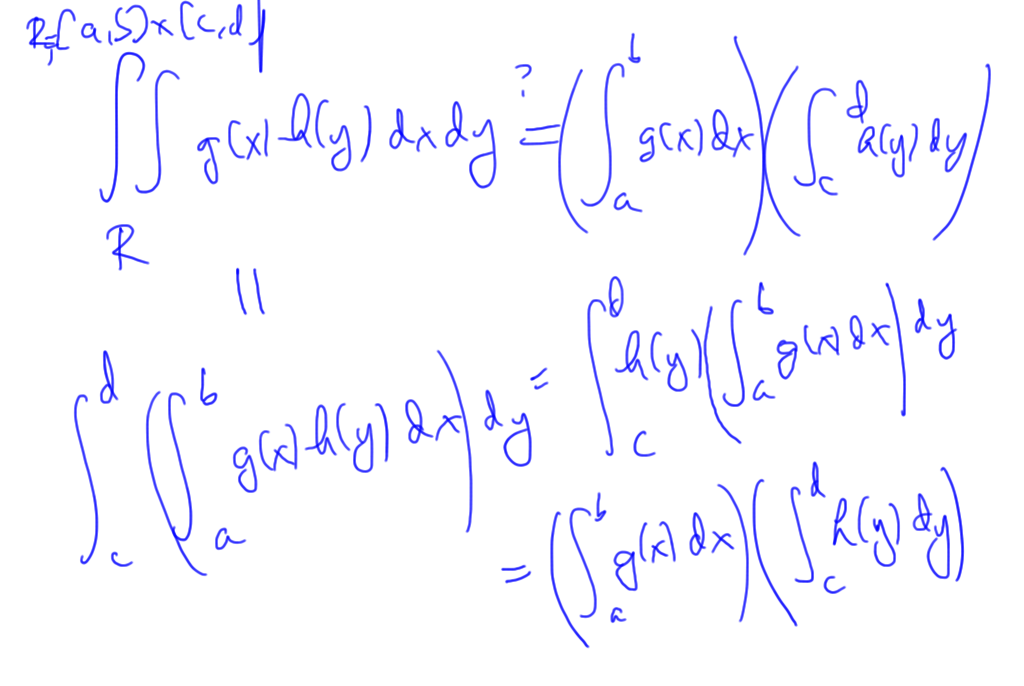 R=[a,b]×[c,d]
∬_R g(x) h(y) dx dy ?= (∫_a^b g(x) dx)(∫_c^d h(y) dy)
||
∫_c^d (∫_a^b g(x) h(y) dx) dy = ∫_c^d h(y) (∫_a^b g(x) dx) dy
= (∫_a^b g(x) dx)(∫_c^d h(y) dy)